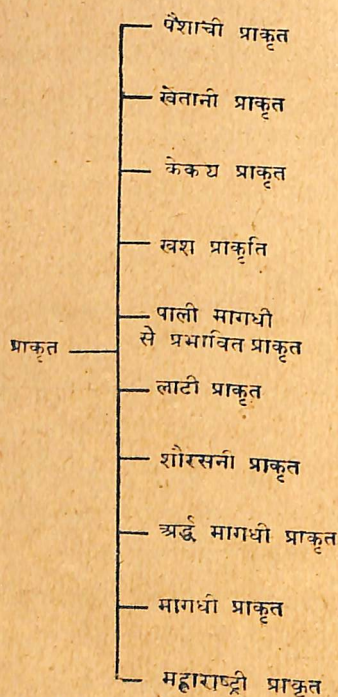 पैशाची प्राकृत
खेतानी प्राकृत
केकय प्राकृत
खश प्राकृति
पाली मागधी
प्राकृत
से प्रभावित प्राकृत
लाटी प्राकृत
शौरसनी प्राकृत
अर्द्ध मागधी प्राकृत
मागधी प्राकृत
महाराष्ट्री प्राकृत